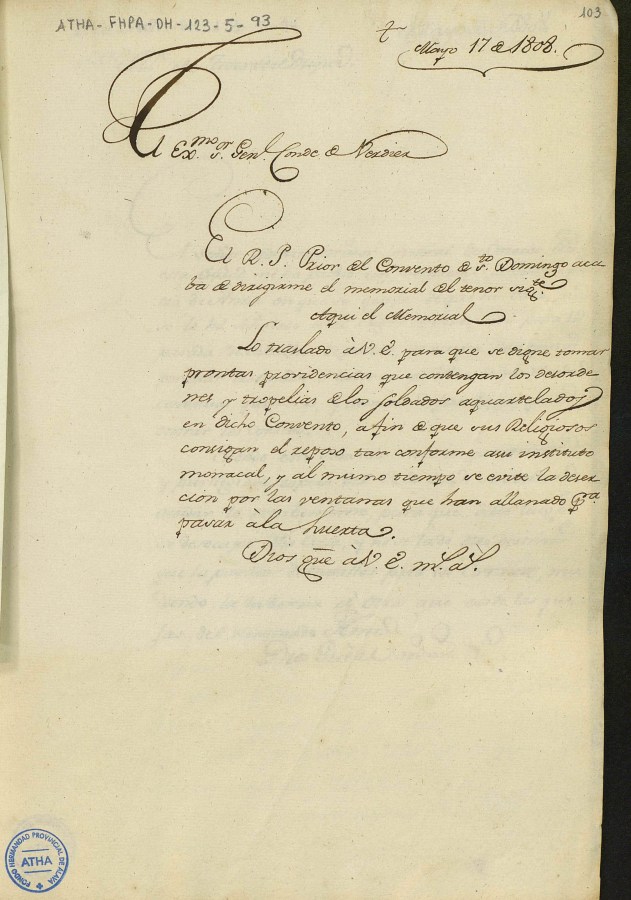 ATHA-FHPA-DH-123-5-93
103
Mayo 17 de 1808.
Exmo. Sr. Genl. Conde de Verdier
El R. P. Prior del Convento de Sto. Domingo aca
ba de dirigirme el memorial del tenor sigte.
Aqui el Memorial
Lo traslado à V. E. para que se digne tomar
prontas providencias que contengan los desorde
nes y tropelias de los Soldados aquartelados
en dicho Convento, afin de que sus Religiosos
consigan el reposo tan conforme asu instituto
monacal, y al mismo tiempo se evite la deser
cion por las ventanas que han allanado pa.
pasar à la huerta.
Dios gue. à V. E. ms. as.
FONDO HERMANDAD PROVINCIAL DE ALAVA
ATHA